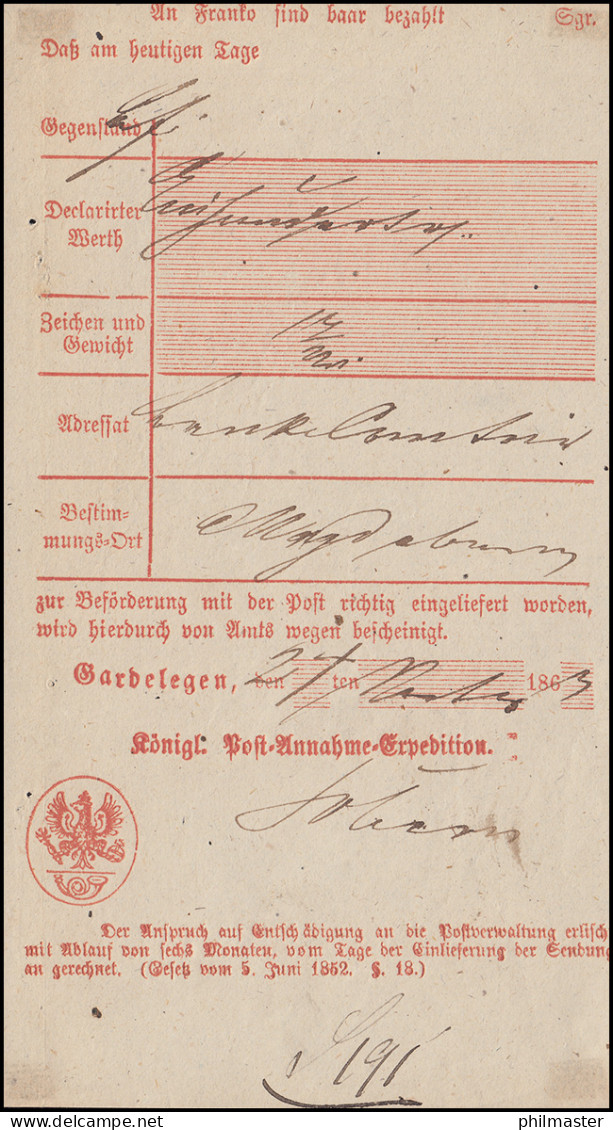 An Franko sind baar bezahlt Sgr.
Daß am heutigen Tage
Gegenstand
Declarirter
Werth
Zeichen und
Gewicht
Adressat
Bestim-
mungs-Ort Magdeburg
zur Beförderung mit der Post richtig eingeliefert worden,
wird hierdurch von Amts wegen bescheinigt.
Gardelegen, den 24 ten 1863
Königl. Post-Annahme-Expedition.
Der Anspruch auf Entschädigung an die Postverwaltung erlisch
mit Ablauf von sechs Monaten, vom Tage der Einlieferung der Sendung
an gerechnet. (Gesetz vom 5. Juni 1852. §. 18.)
191
delcampe.net
philmaster